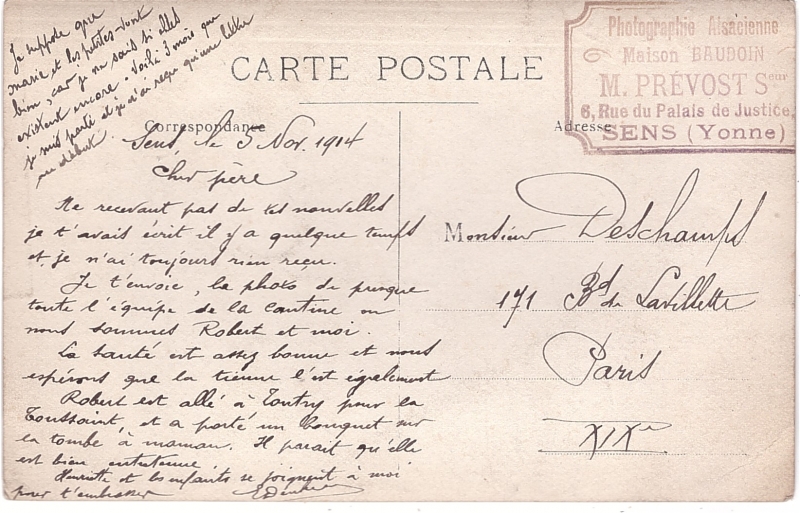 Je suppose que
marie et les petites vont
bien, car je ne sais si elles
existent encore. Voilà 3 mois que
je suis parti et je n'ai reçu qu'une lettre
au début.
CARTE POSTALE
Photographie Alsacienne
Maison BAUDOIN
M. PRÉVOST Seur
6, Rue du Palais de Justice,
SENS (Yonne)
Correspondance
Adresse
Sens le 5 Nov. 1914
Cher père
Ne recevant pas de tes nouvelles
je t'avais écrit il y a quelque temps
et je n'ai toujours rien reçu.
Je t'envoie, la photo de presque
toute l'équipe de la cantine ou
nous sommes Robert et moi.
La santé est assez bonne et nous
espérons que la tienne l'est également
Robert est allé à Toutry pour la
Toussaint, et a porté un bouquet sur
la tombe à maman. Il parait qu'elle
est bien entretenue
Henriette et les enfants se joignent à moi
pour t'embrasser
Monsieur Deschamps
171 Bd de Lavillette
Paris
XIXe